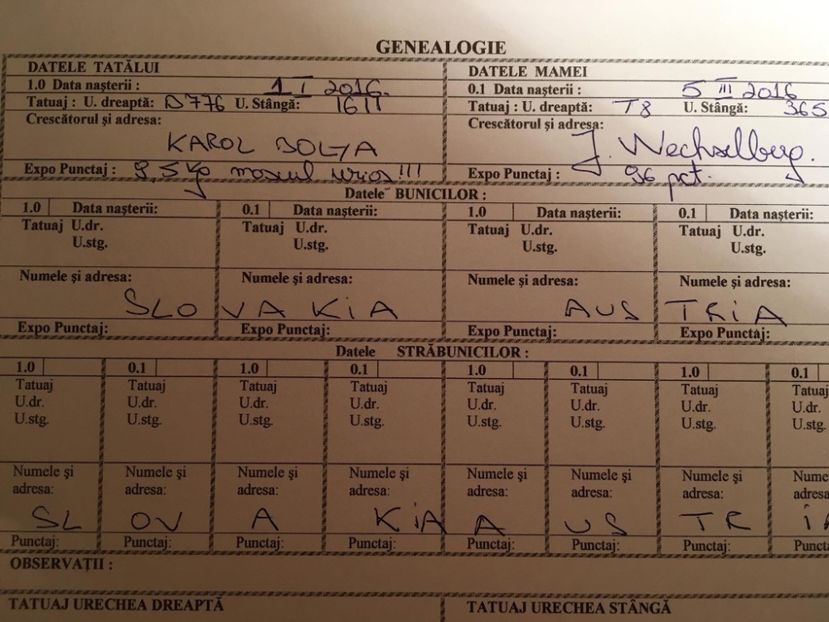 GENEALOGIE
DATELE TATĂLUI
1.0 Data nașterii : 1 I 2016.
Tatuaj : U. dreaptă: D776 U. Stângă: 1611
Crescătorul și adresa:
KAROL BOLYA
Expo Punctaj : 9,5 kg mascul urias!!!
DATELE MAMEI
0.1 Data nașterii : 5 III 2016
Tatuaj : U. dreaptă: T8 U. Stângă: 365
Crescătorul și adresa:
J. Wechselberg.
Expo Punctaj : 96 pct.
Datele BUNICILOR :
1.0 Data nașterii: 0.1 Data nașterii: 1.0 Data nașterii: 0.1 Data nașterii:
Tatuaj U.dr. Tatuaj U.dr. Tatuaj U.dr. Tatuaj U.dr.
U.stg. U.stg. U.stg. U.stg.
Numele și adresa: Numele și adresa: Numele și adresa: Numele și adresa:
SLOVAKIA AUSTRIA
Expo Punctaj: Expo Punctaj: Expo Punctaj: Expo Punctaj:
Datele STRĂBUNICILOR :
1.0 0.1 1.0 0.1 1.0 0.1 1.0 0.1
Tatuaj Tatuaj Tatuaj Tatuaj Tatuaj Tatuaj Tatuaj Tatuaj
U.dr. U.dr. U.dr. U.dr. U.dr. U.dr. U.dr. U.dr.
U.stg. U.stg. U.stg. U.stg. U.stg. U.stg. U.stg. U.stg.
Numele și Numele și Numele și Numele și Numele și Numele și Numele și Nume
adresa: adresa: adresa: adresa: adresa: adresa: adresa: adresa
SLOVAKIA AUSTRIA
Punctaj: Punctaj: Punctaj: Punctaj: Punctaj: Punctaj: Punctaj: Punct
OBSERVAȚII :
TATUAJ URECHEA DREAPTĂ TATUAJ URECHEA STÂNGĂ